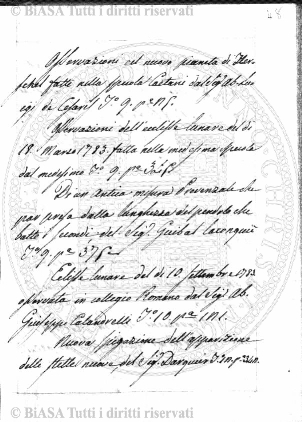 © BiASA Tutti i diritti riservati
28
Osservazioni del nuovo pianeta di Her-
schel fatte nella specola Caetani dal Sig. Ab. Lui
gi de Cesaris T.º 9. p.
Osservazione dell'eclisse lunare del dì
18. Marzo 1783. fatta nella medesima specola
dal medesimo T.º 9. p.
Di un antica misura Provenzale che
par presa dalla lunghezza del pendolo che
batte i secondi del Sig.
T.º 9. p. 375
Eclisse lunare del dì 10. settembre 1783
osservata in collegio Romano dal Sig. Ab.
Giuseppe Calandrelli T.º 10. p.
Nuova spiegazione dell'apparizione
delle stelle nuove del Sig. Darquier
© BiASA Tutti i diritti riservati